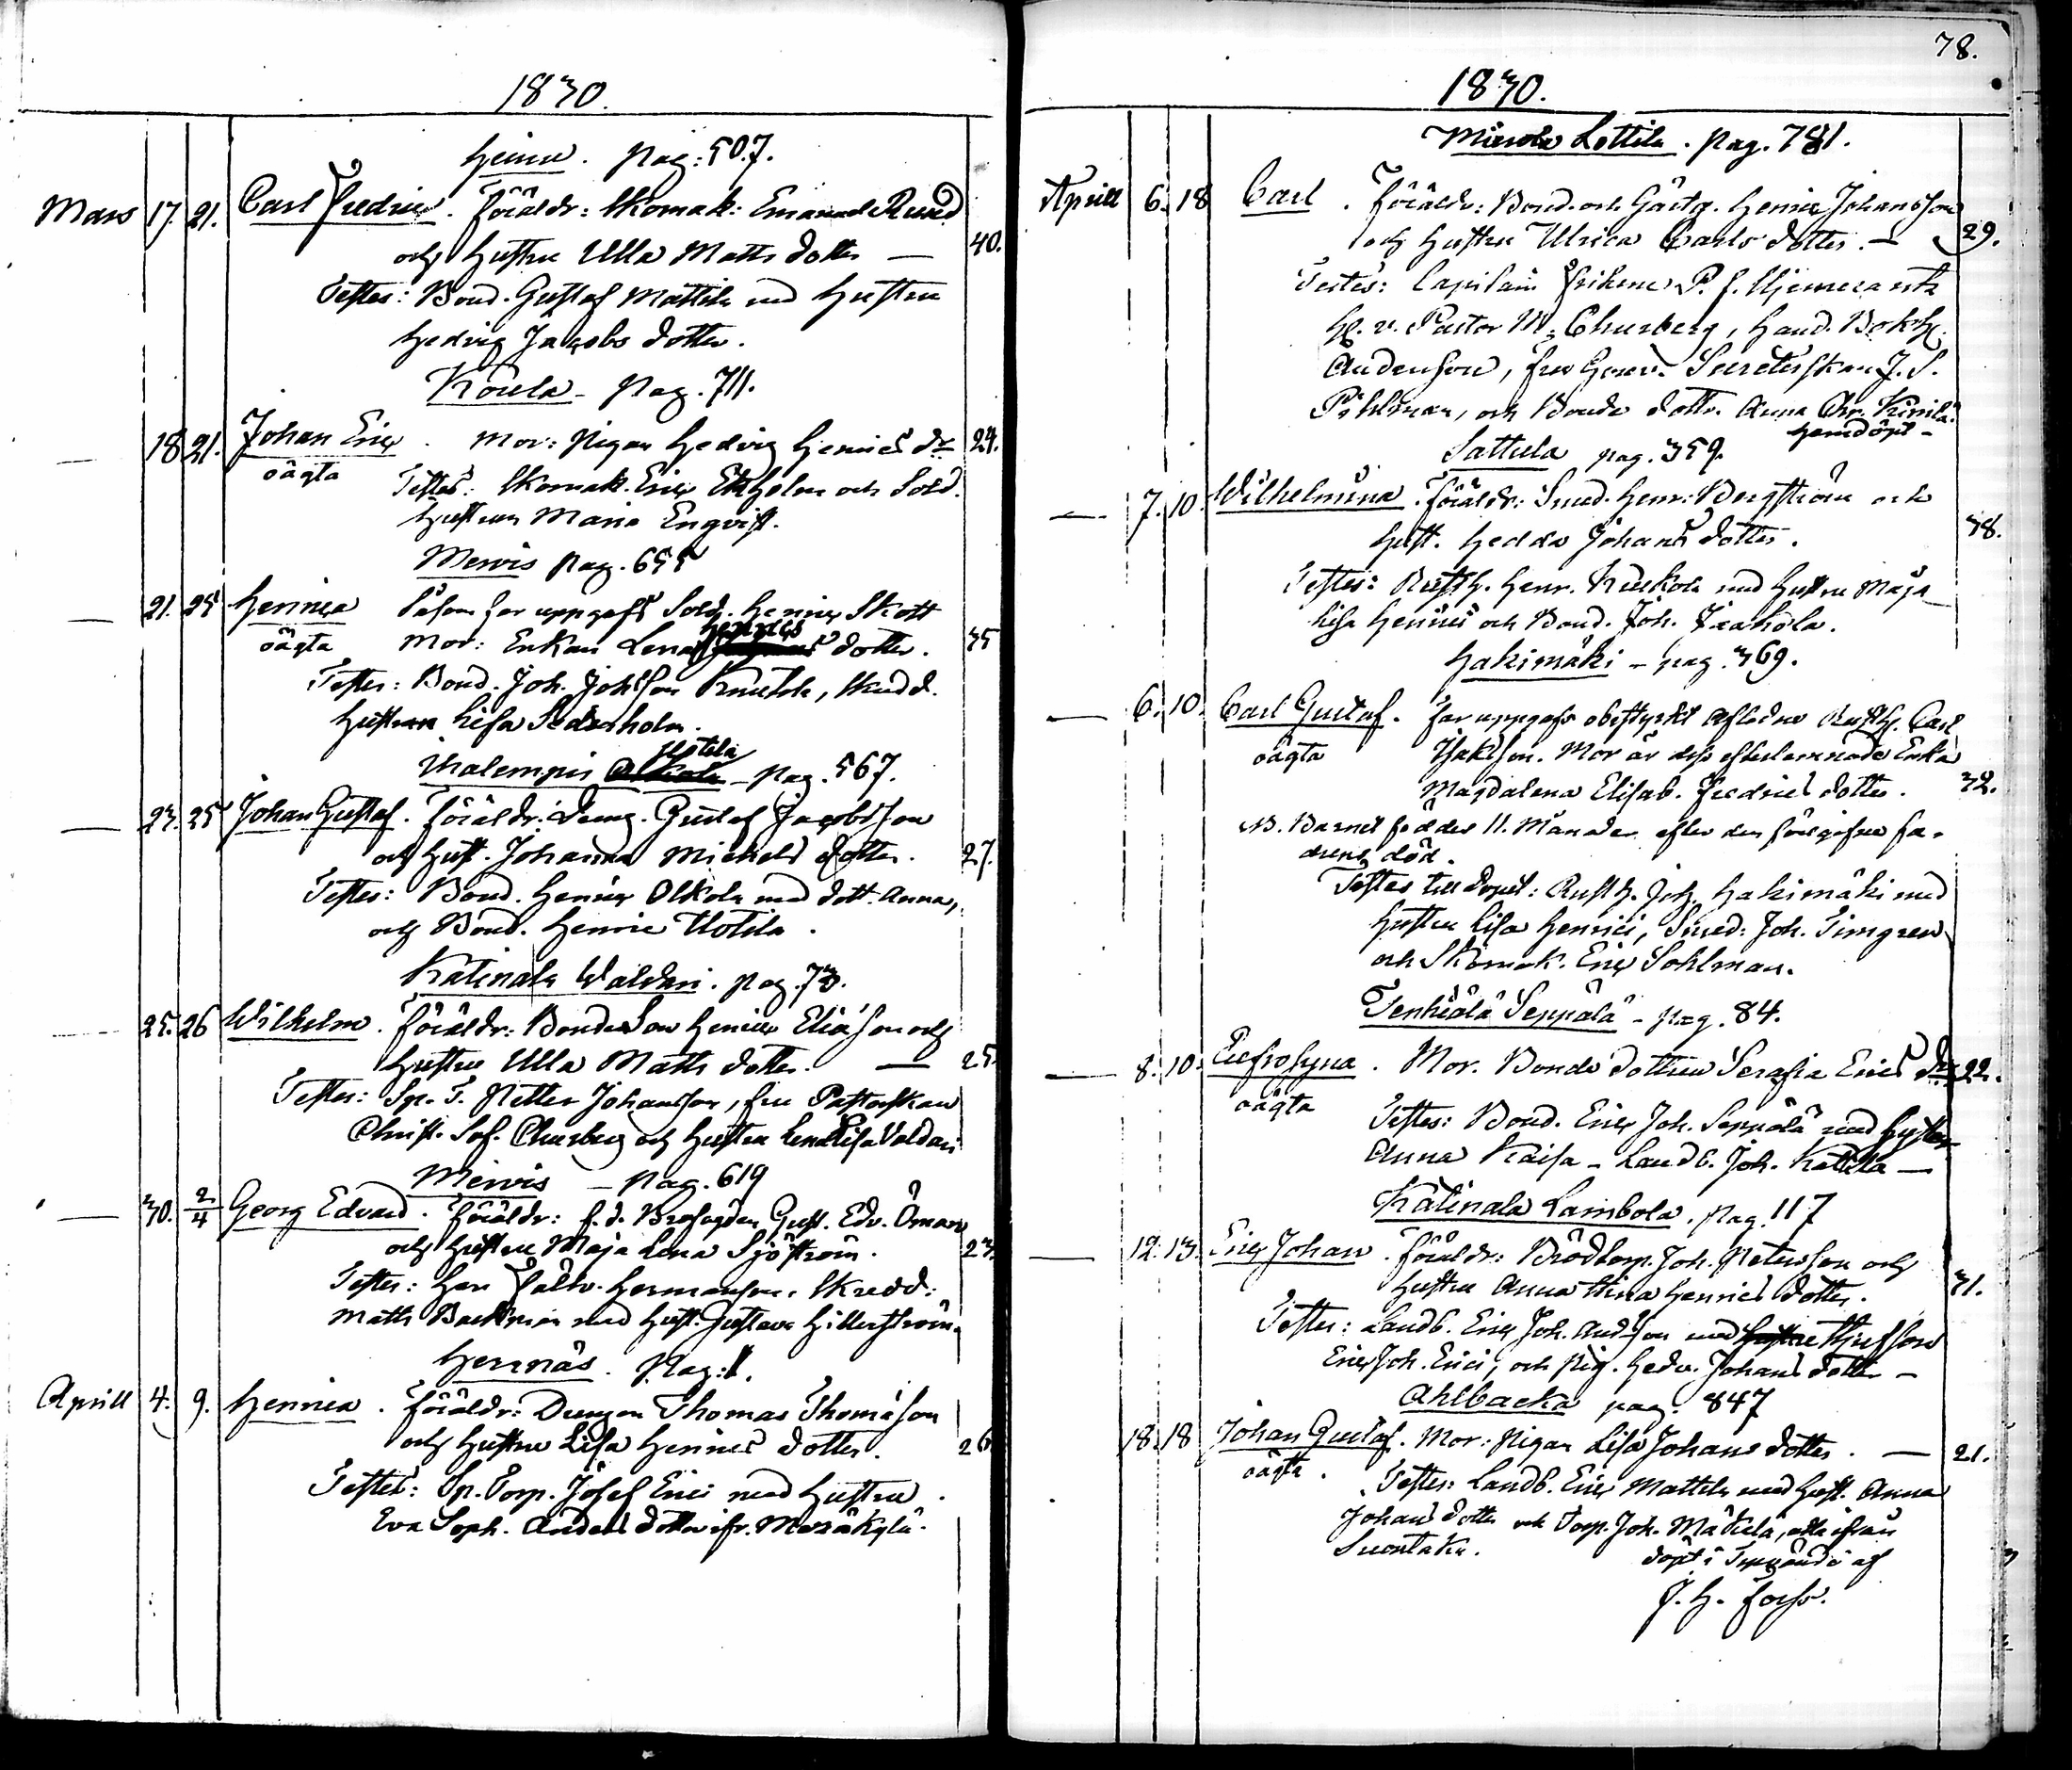 1830.
Heinu. pag: 507.
Mars 17. 21. Carl Fredric. Föräldr: Skomak: Emanuel
och Hustru Ulla Matts dotter — 40.
Testes: Bond. Gustaf Mattila med Hustru
Hedvig Jacobs dotter.
pag. 711.
— 18 21. Johan Eric. Mor: Pigan Hedvig Henrics dr 24.
oägta Testes: Skomak. Eric Ekholm och Sold.
Hustrun Maria Enqvist.
Mervis pag. 655
— 21. 25 Henrica Såsom far uppgafs Sold. Henric Skott
oägta Mor: Enkan Lena Henrics dotter. 35
Testes: Bond. Joh. Johsson Knuutila, Skudd.
Hustrun Lisa Söderholm.
Thalempis Uotila pag. 567.
— 23. 25 Johan Gustaf. Föräldr: Dreng. Gustaf Jacobsson
och Hust. Johanna Mickels dotter. 27.
Testes: Bond. Henric Olkola med dott. Anna,
och Bond. Henric Uotila.
Katinala Waldari. pag. 73.
25. 26 Wilhelm. Föräldr: Bonde Son Henric Eliæson och
Hustru Ulla Matts dotter. — 25.
Testes: Sp. T. Petter Johansson, fru Pastorskan
Christ. Sof. Churberg och Hustru Lena Lisa Valdari
Mervis — pag. 619
— 30. 2/4 Georg Edvard. Föräldr: f.d. Brofogden Gust. Edv. Öman
och Hustru Maja Lena Sjöström. 23.
Testes: Herr Fältv. Hermanson, Skredd:
Matts Backman med Hust. Gustava Hillerström.
Herrnäs. Pag: 1.
Aprill 4. 9. Henrica. Föräldr: Drengen Thomas Thomæson
och Hustru Lisa Henrics dotter. 26
Testes: Sp. Torp. Josef Erici med Hustru
Eva Soph. Anders dotter ifr.
78.
1830.
Miemola Lottila. pag. 781.
Aprill 6. 18 Carl. Föräldr: Bond. och Gästg. Henric Johansson
och Hustru Ulrica Carls dotter. — 29.
Testes: Capitain Friherre P. f. Stjernerantz
H. v. Pastor M. Churberg, Hand. Bokh.
Andenson, fru Guver. Secreterskan J. S.
Pihlman, och Bonde dottr. Anna Chr. Kirstilä.
hemdöpt —
Sattula pag. 359.
— 7. 10. Wilhelmina. Föräldr: Smed. Henr: Bergström och
Hust. Hedda Johans dotter. 38.
Testes: Rusth. Henr. Kuckola med Hustru Maja
Lisa Henrici och Bond. Joh. Jaakola.
Hakimäki — pag. 369.
— 6. 10. Carl Gustaf. Far uppgafs obestyrkt aflidne Rusth. Carl
oägta Isaksson. Mor är dess efterlemnade Enka
Magdalena Elisab. Fredrics dotter. 32.
NB. Barnet föddes 11. Månader efter den föregifne fa-
drens död.
Testes till dopet: Rusth. Joh. Hakimäki med
Hustru Lisa Henrici, Smed: Joh. Timgren
och Skomak. Eric Sohlman.
Tenhiälä Seppälä — pag. 84.
— 8. 10. Eufrosyna. Mor. Bonde dottren Serafia Erics dr 22.
oägta Testes: Bond. Eric Joh. Seppälä med Hustru
Anna Kaisa — Landb. Joh. Kattila —
Katinala Lambola. pag. 117
— 12. 13. Eric Johan. Föräldr: Brödtorp. Joh. Petersson och
Hustru Anna Stina Henrics dotter. 31.
Testes: Landb. Eric Joh. Andsson med Stjufson
Eric Joh. Erici, och pig. Hedv. Johans dotter —
Ahlbacka pag. 847
18. 18 Johan Gustaf. Mor: Pigan Lisa Johans dotter. — 21.
oägta. Testes: Landb. Eric Mattila med Hust. Anna
Johans dotter och Torp. Joh. Mäkelä, alla ifrån
Suontaka. döpt i af
J. H. Forss.